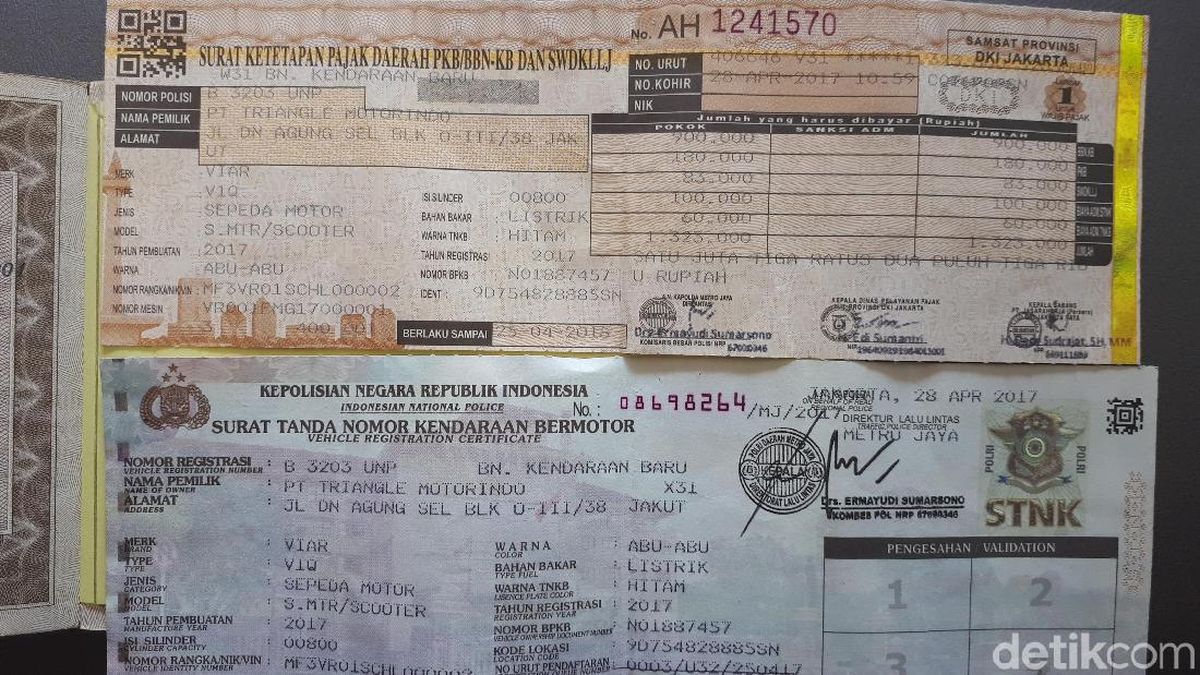 No. AH 1241570
SURAT KETETAPAN PAJAK DAERAH PKB/BBN-KB DAN SWDKLLJ
SAMSAT PROVINSI
DKI JAKARTA
W31 BN. KENDARAAN BARU
NO. URUT
NO.KOHIR 28 APR 2017 10:59
NIK
NOMOR POLISI B 3203 UNP
NAMA PEMILIK PT TRIANGLE MOTORINDO
ALAMAT JL DN AGUNG SEL BLK O-III/38 JAK
UT
Jumlah yang harus dibayar (Rupiah)
POKOK SANKSI ADM JUMLAH
900.000 900.000 BBN KB
180.000 180.000 PKB
83.000 83.000 SWDKLLJ
100.000 100.000 BIAYA ADM STNK
60.000 60.000 BIAYA ADM TNKB
1.323.000 1.323.000 JUMLAH
SATU JUTA TIGA RATUS DUA PULUH TIGA RIB
U RUPIAH
MERK VIAR
TYPE V1Q
JENIS SEPEDA MOTOR
MODEL S.MTR/SCOOTER
TAHUN PEMBUATAN : 2017
WARNA ABU-ABU
NOMOR RANGKA/NIK/VIN : MF3VR01SCHL000002
NOMOR MESIN VR001FMG17000001
ISI SILINDER 00800
BAHAN BAKAR : LISTRIK
WARNA TNKB : HITAM
TAHUN REGISTRASI : 2017
NOMOR BPKB : N01887457
IDENT : 9D754828885SN
BERLAKU SAMPAI
A.N. KAPOLDA METRO JAYA
DIRLANTAS
Drs Ermayudi Sumarsono
KOMISARIS BESAR POLISI NRP
KEPALA DINAS PELAYANAN PAJAK
PROVINSI DKI JAKARTA
Edi Sumantri
KEPALA CABANG
KEPOLISIAN NEGARA REPUBLIK INDONESIA
INDONESIAN NATIONAL POLICE
No. : 08698264 /MJ/2017
SURAT TANDA NOMOR KENDARAAN BERMOTOR
VEHICLE REGISTRATION CERTIFICATE
JAKARTA, 28 APR 2017
DIREKTUR LALU LINTAS
TRAFFIC POLICE DIRECTOR
METRO JAYA
KEPALA
Drs. ERMAYUDI SUMARSONO
KOMBES POL NRP
POLRI POLRI
STNK
NOMOR REGISTRASI : B 3203 UNP BN. KENDARAAN BARU
VEHICLE REGISTRATION NUMBER
NAMA PEMILIK : PT TRIANGLE MOTORINDO X31
NAME OF OWNER
ALAMAT : JL DN AGUNG SEL BLK O-III/38 JAKUT
ADDRESS
MERK : VIAR
BRAND
TYPE : V1Q
TYPE
JENIS : SEPEDA MOTOR
CATEGORY
MODEL : S.MTR/SCOOTER
MODEL
TAHUN PEMBUATAN : 2017
MANUFACTURE YEAR
ISI SILINDER : 00800
CYLINDER CAPACITY
NOMOR RANGKA/NIK/VIN : MF3VR01SCHL000002
VEHICLE IDENTITY NUMBER
WARNA : ABU-ABU
COLOR
BAHAN BAKAR : LISTRIK
TYPE FUEL
WARNA TNKB : HITAM
LISENCE PLATE COLOR
TAHUN REGISTRASI : 2017
REGISTRATION YEAR
NOMOR BPKB : N01887457
VEHICLE OWNERSHIP DOCUMENT NUMBER
KODE LOKASI : 9D754828885SN
LOCATION CODE
NO URUT PENDAFTARAN : 0003/U32/250417
PENGESAHAN / VALIDATION
1 2
3
detikcom